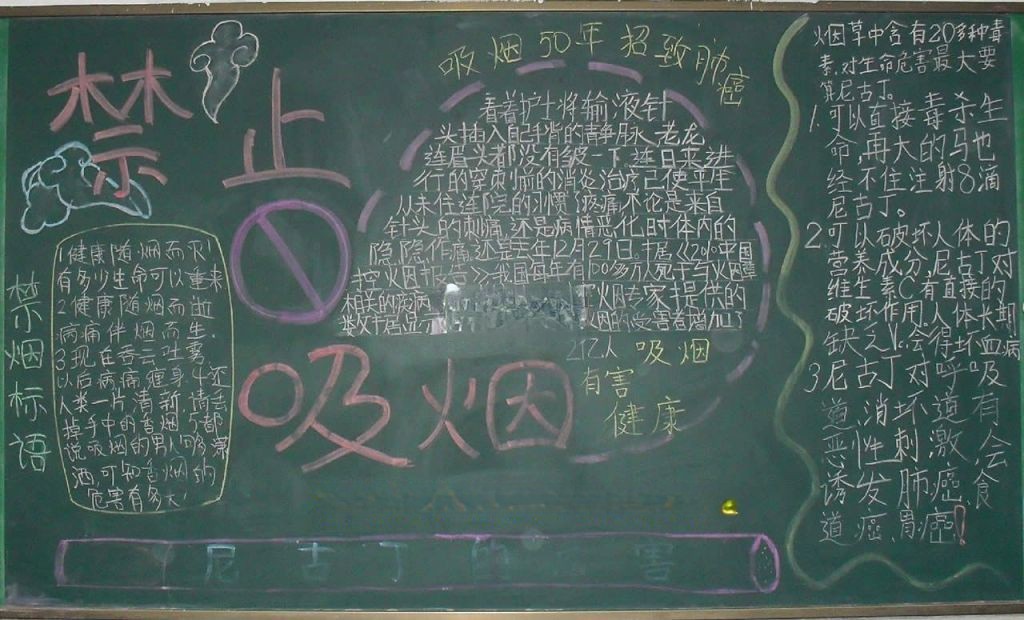 禁止
吸烟
禁烟标语
1健康随烟而灭!
有多少生命可以重来
2健康随烟而逝
病痛伴烟而生.
3现在吞云吐雾
以后病痛缠身.4还
人类一片清新,请丢
掉手中的香烟.5都
说吸烟的男人够潇
洒,可知香烟的
危害有多大!
吸烟50年招致肺癌
看着护士将输液针
头插入自己手背的静脉,老龙
连眉头都没有皱一下.连日来进
行的穿刺前的消炎治疗已使平生
从未住过院的他习惯了疼痛不论是来自
针头的刺痛,还是病情恶化时体内的
隐隐作痛.还是去年12月29日.
控烟报告》我国每年有100多万人死于与烟草
相关的疾病
烟专家提供的
数据显示
烟的受害者增加了
2亿人
吸烟
有害
健康
烟草中含有20多种毒
素,对生命危害最大要
算尼古丁。
1.可以直接毒杀生
命,再大的马也
经不住注射8滴
尼古丁。
2.可以破坏人体的
营养成分,尼古丁对
维生素C有直接的
破坏作用,人体长期
缺乏Vc会得坏血病
3尼古丁对呼吸
道消坏道有
恶性刺激会
诱发肺癌食
道癌、胃癌!
尼古丁的 害